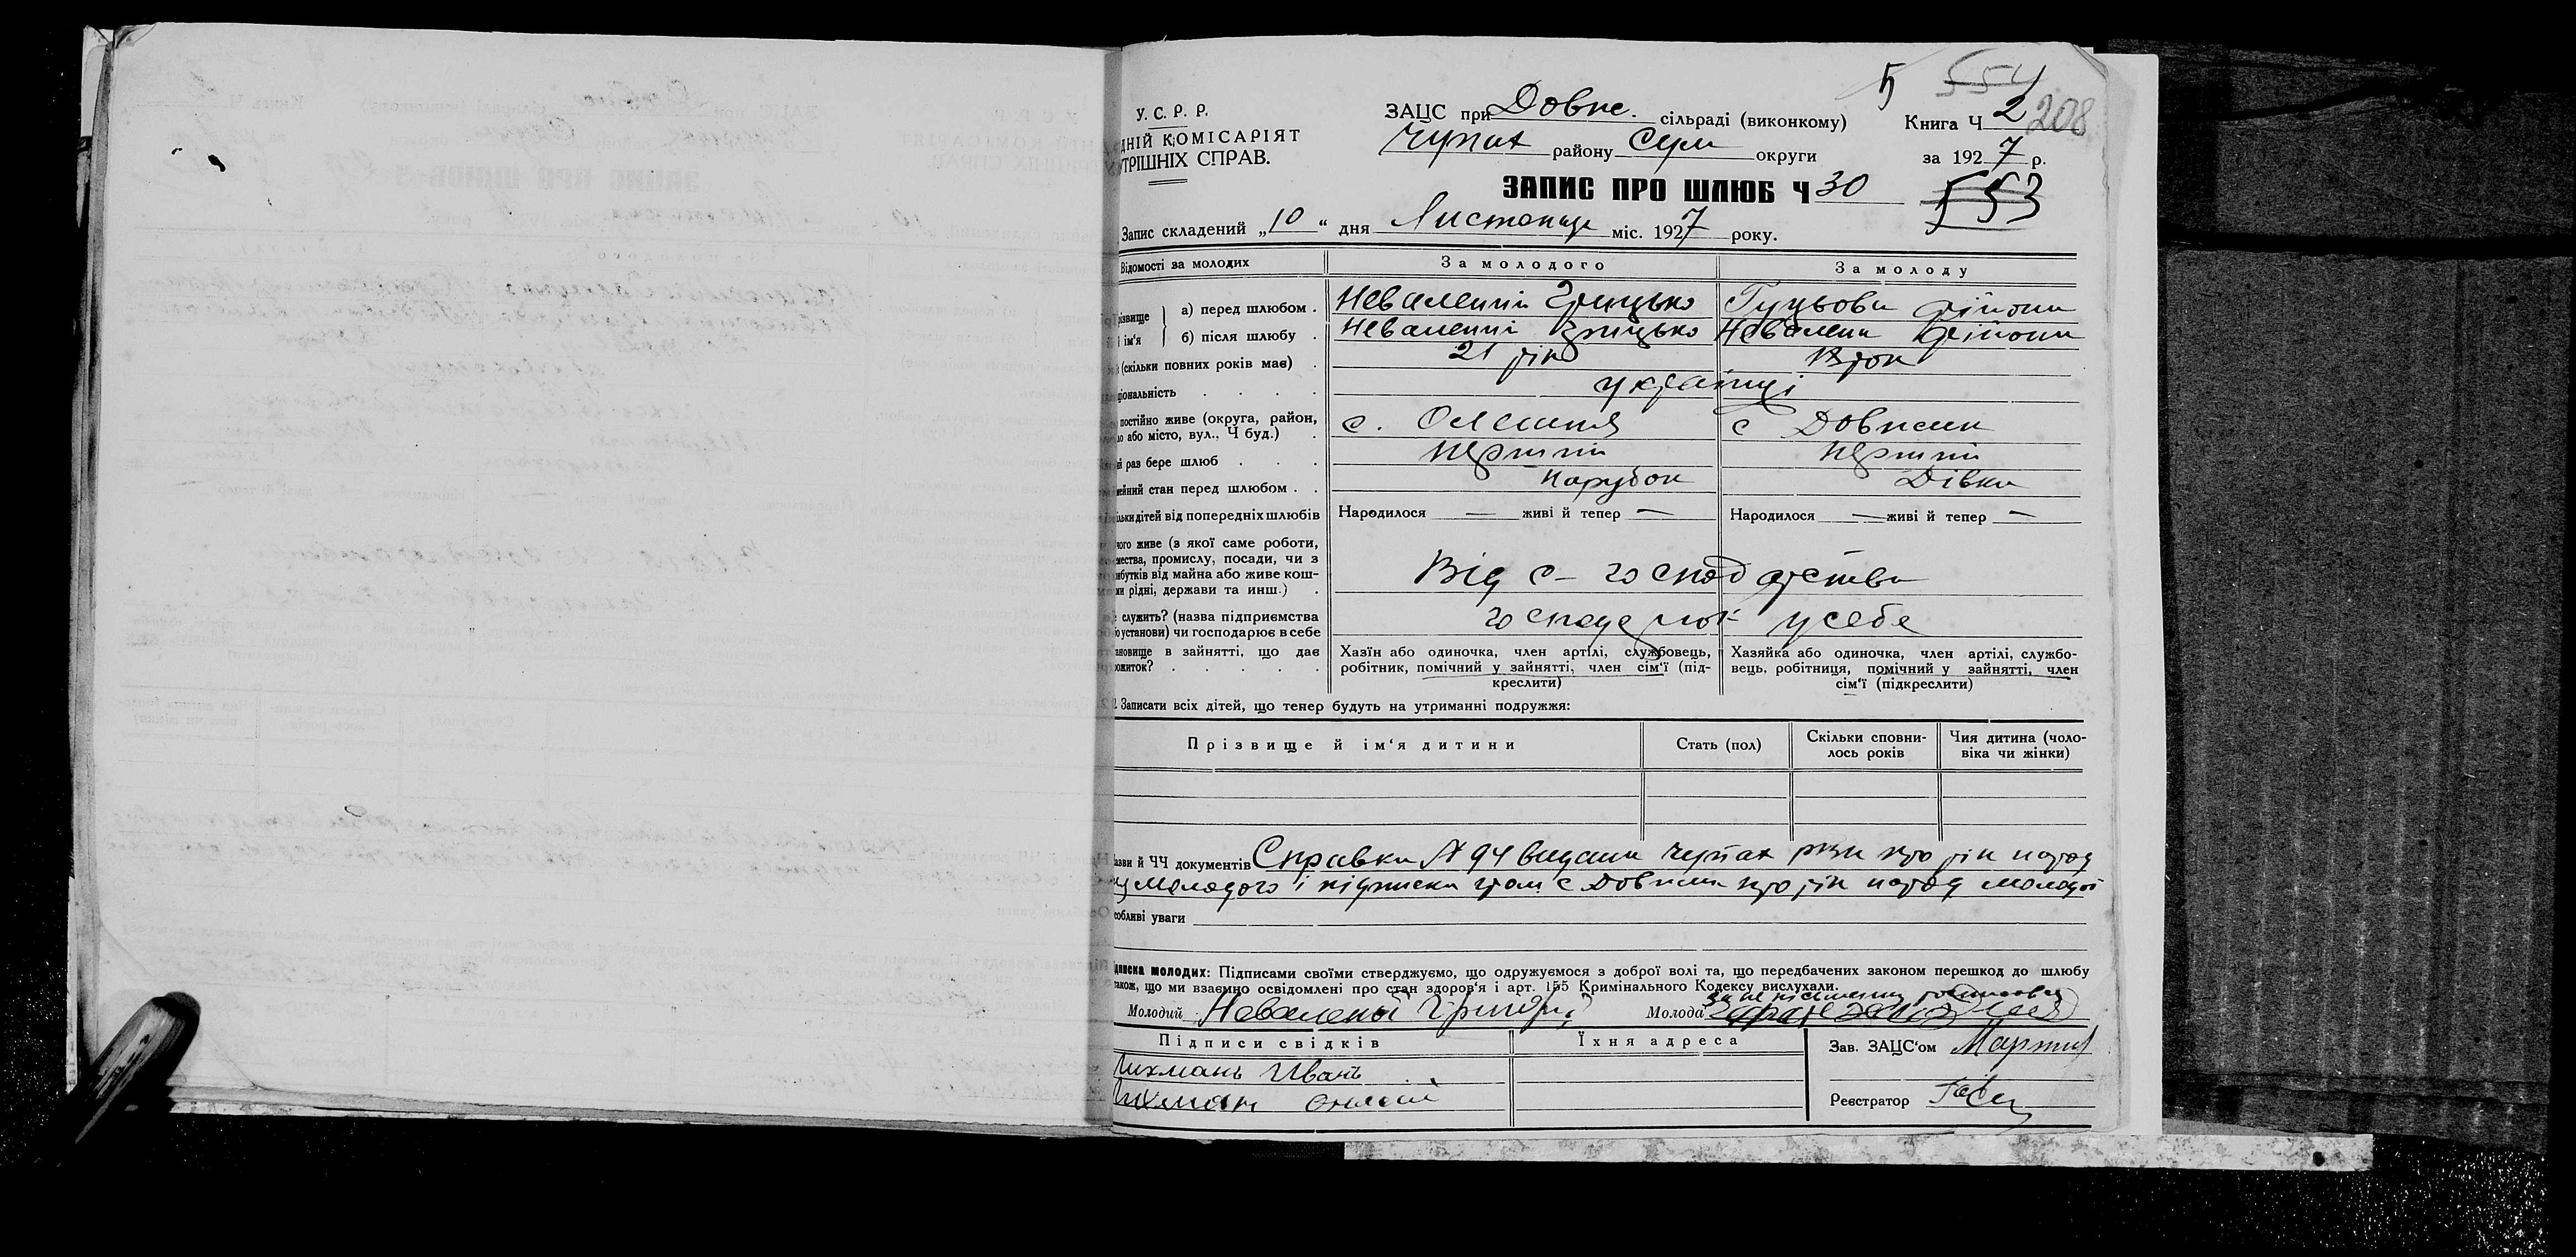 5 554
У. С. Р. Р. ЗАЦС при Довж. сільраді (виконкому) Книга Ч 2 208
ДНІЙ КОМІСАРІЯТ Чупах району Сум округи за 1927 р.
ТРІШНІХ СПРАВ.
ЗАПИС ПРО ШЛЮБ Ч 30 553
Запис складений „10“ дня Листопада міс. 1927 року.
Відомості за молодих За молодого За молоду
ізвище а) перед шлюбом . Невалений Грицько Гуцьова
і ім'я б) після шлюбу . Невалений Грицько Невалена
(скільки повних років має) . 21 рік
ціональність . . . . українці
постійно живе (округа, район, с. Олешня с
або місто, вул., Ч буд.) .
раз бере шлюб . . . перший перший
ейний стан перед шлюбом . . парубок Дівка
ільки дітей від попередніх шлюбів Народилося — живі й тепер — Народилося — живі й тепер —
чого живе (з якої саме роботи,
мества, промислу, посади, чи з
ибутків від майна або живе кош- Від с-господарства
ми рідні, держави та инш.) .
служить? (назва підприємства у себе
о установи) чи господарює в себе
ановище в зайнятті, що дає Хазїн або одиночка, член артілі, службовець, Хазяйка або одиночка, член артілі, службо-
ожиток? . . . . . робітник, помічний у зайнятті, член сім'ї (під- вець, робітниця, помічний у зайнятті, член
креслити) сім'ї (підкреслити)
2. Записати всіх дітей, що тепер будуть на утриманні подружжя:
Прізвище й ім'я дитини Стать (пол) Скільки сповни- Чия дитина (чоло-
лось років віка чи жінки)
азви й ЧЧ документів Справка № 94 видана Чупах про рік народ
молодого і підписка гром с про рік народ молодої
собливі уваги
дписка молодих: Підписами своїми стверджуємо, що одружуємося з доброї волі та, що передбачених законом перешкод до шлюбу
також, що ми взаємно освідомлені про стан здоров'я і арт. 155 Кримінального Кодексу вислухали.
Молодий Невалений Григорий Молода
Підписи свідків Їхня адреса Зав. ЗАЦС'ом
Лихмань Иванъ
Лихман Реєстратор